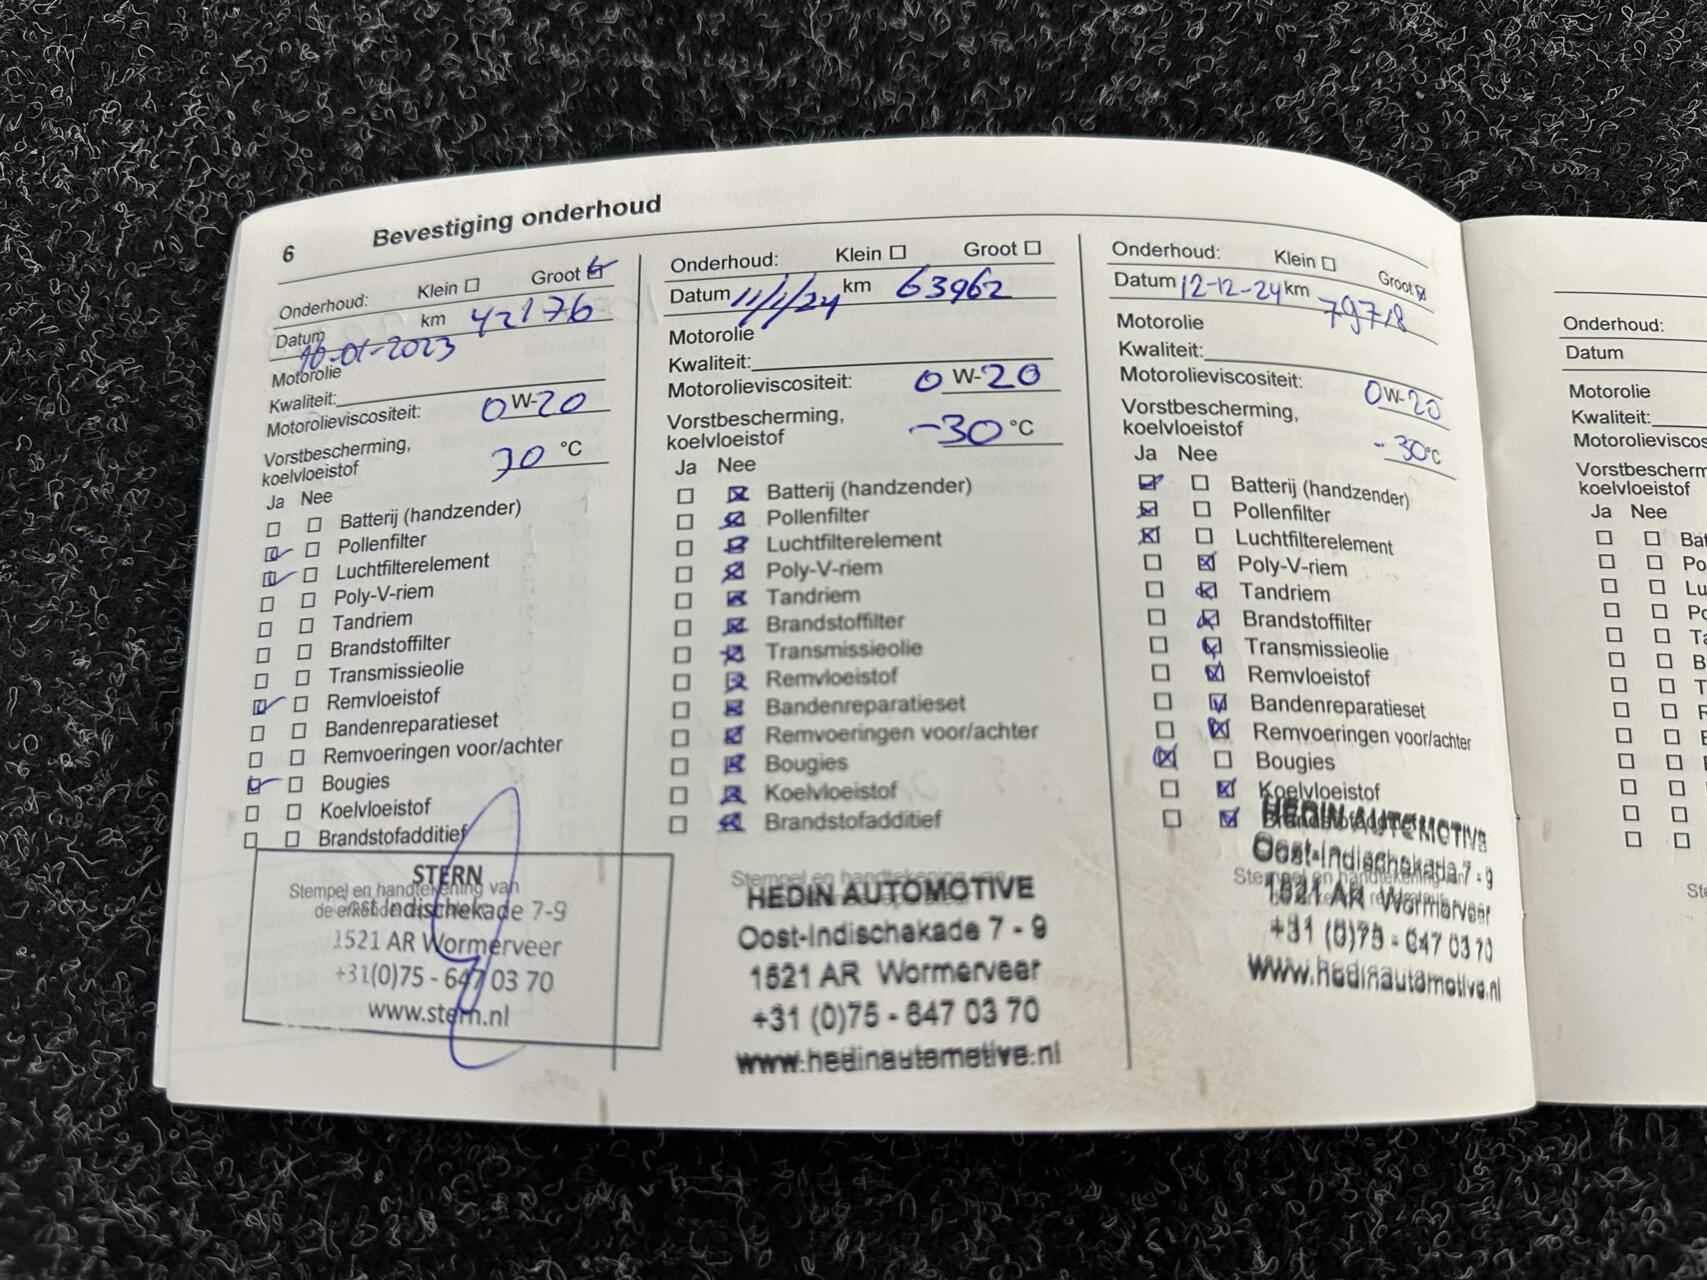 6 Bevestiging onderhoud
Onderhoud: Klein Groot
Datum km 42176
10-01-2023
Motorolie
Kwaliteit:
Motorolieviscositeit: 0 W-20
Vorstbescherming,
koelvloeistof 30 °C
Ja Nee
Batterij (handzender)
Pollenfilter
Luchtfilterelement
Poly-V-riem
Tandriem
Brandstoffilter
Transmissieolie
Remvloeistof
Bandenreparatieset
Remvoeringen voor/achter
Bougies
Koelvloeistof
Brandstofadditief
STERN
Stempel en handtekening van
Oost-Indischekade 7-9
1521 AR Wormerveer
+31(0)75 - 647 03 70
www.stern.nl
Onderhoud: Klein Groot
Datum 11/1/24 km 63962
Motorolie
Kwaliteit:
Motorolieviscositeit: 0 W-20
Vorstbescherming,
koelvloeistof -30 °C
Ja Nee
Batterij (handzender)
Pollenfilter
Luchtfilterelement
Poly-V-riem
Tandriem
Brandstoffilter
Transmissieolie
Remvloeistof
Bandenreparatieset
Remvoeringen voor/achter
Bougies
Koelvloeistof
Brandstofadditief
Stempel en handtekening van
HEDIN AUTOMOTIVE
Oost-Indischekade 7 - 9
1521 AR Wormerveer
+31 (0)75 - 647 03 70
www.hedinautomotive.nl
Onderhoud: Klein Groot
Datum 12-12-24 km 79718
Motorolie
Kwaliteit:
Motorolieviscositeit: 0W-20
Vorstbescherming,
koelvloeistof -30°C
Ja Nee
Batterij (handzender)
Pollenfilter
Luchtfilterelement
Poly-V-riem
Tandriem
Brandstoffilter
Transmissieolie
Remvloeistof
Bandenreparatieset
Remvoeringen voor/achter
Bougies
Koelvloeistof
HEDIN AUTOMOTIVE
Oost-Indischekade 7 - 9
Stempel en handtekening van
1521 AR Wormerveer
+31 (0)75 - 647 03 70
www.hedinautomotive.nl
Onderhoud:
Datum
Motorolie
Kwaliteit:
Motorolieviscos
Vorstbescherm
koelvloeistof
Ja Nee
Bat
Po
Lu
Po
Ta
B
T
R